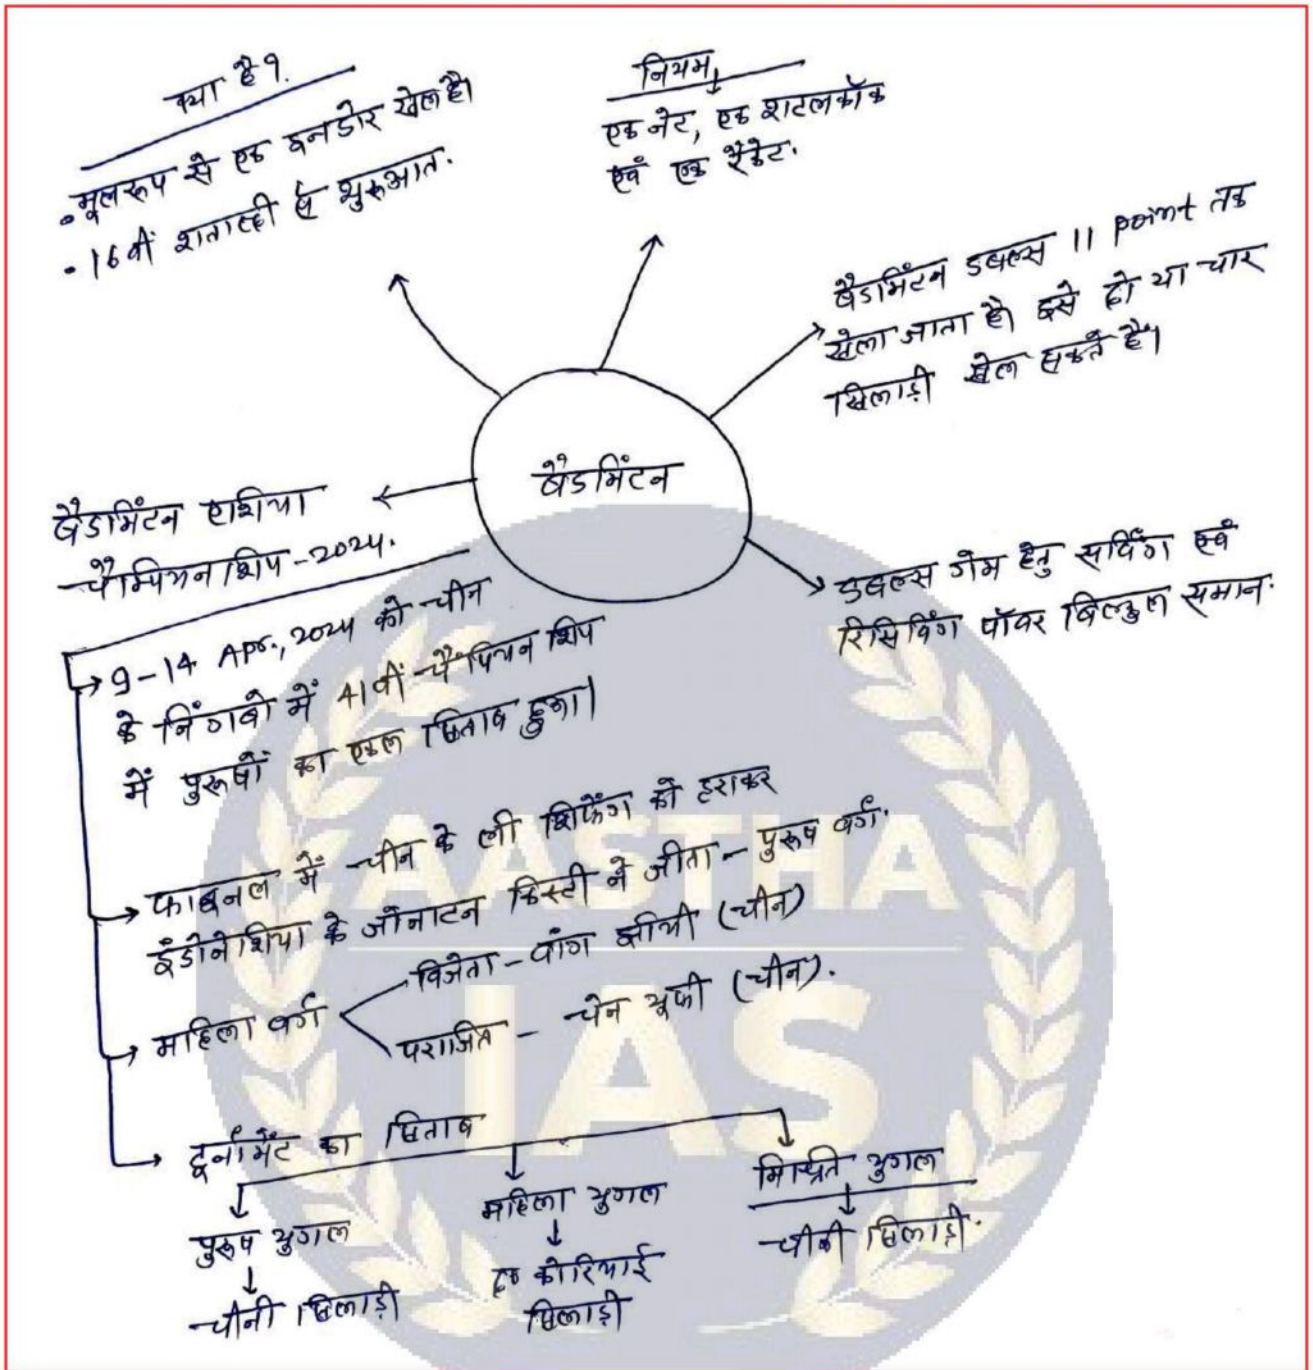 क्या है?
• मूलरूप से एक इनडोर खेल है।
• 16वीं शताब्दी से शुरुआत.
नियम
एक नेट, एक शटलकॉक
एवं एक रैकेट.
बैडमिंटन डबल्स 11 point तक
खेला जाता है। इसे दो या चार
खिलाड़ी खेल सकते हैं।
बैडमिंटन
डबल्स गेम हेतु सर्विंग एवं
रिसिविंग पॉवर बिल्कुल समान.
बैडमिंटन एशिया
चैम्पियनशिप-2024.
9-14 Apr., 2024 को चीन
के निंगबो में 41वीं चैंपियनशिप
में पुरूषों का एकल खिताब हुआ।
फाइनल में चीन के ली शिफेंग को हराकर
इंडोनेशिया के जोनाटन क्रिस्टी ने जीता - पुरूष वर्ग.
महिला वर्ग
विजेता - वांग झीयी (चीन)
पराजित - चेन यूफी (चीन).
टूर्नामेंट का खिताब
पुरूष युगल
चीनी खिलाड़ी
महिला युगल
द० कोरियाई
खिलाड़ी
मिश्रित युगल
चीनी खिलाड़ी.
AASTHA
IAS